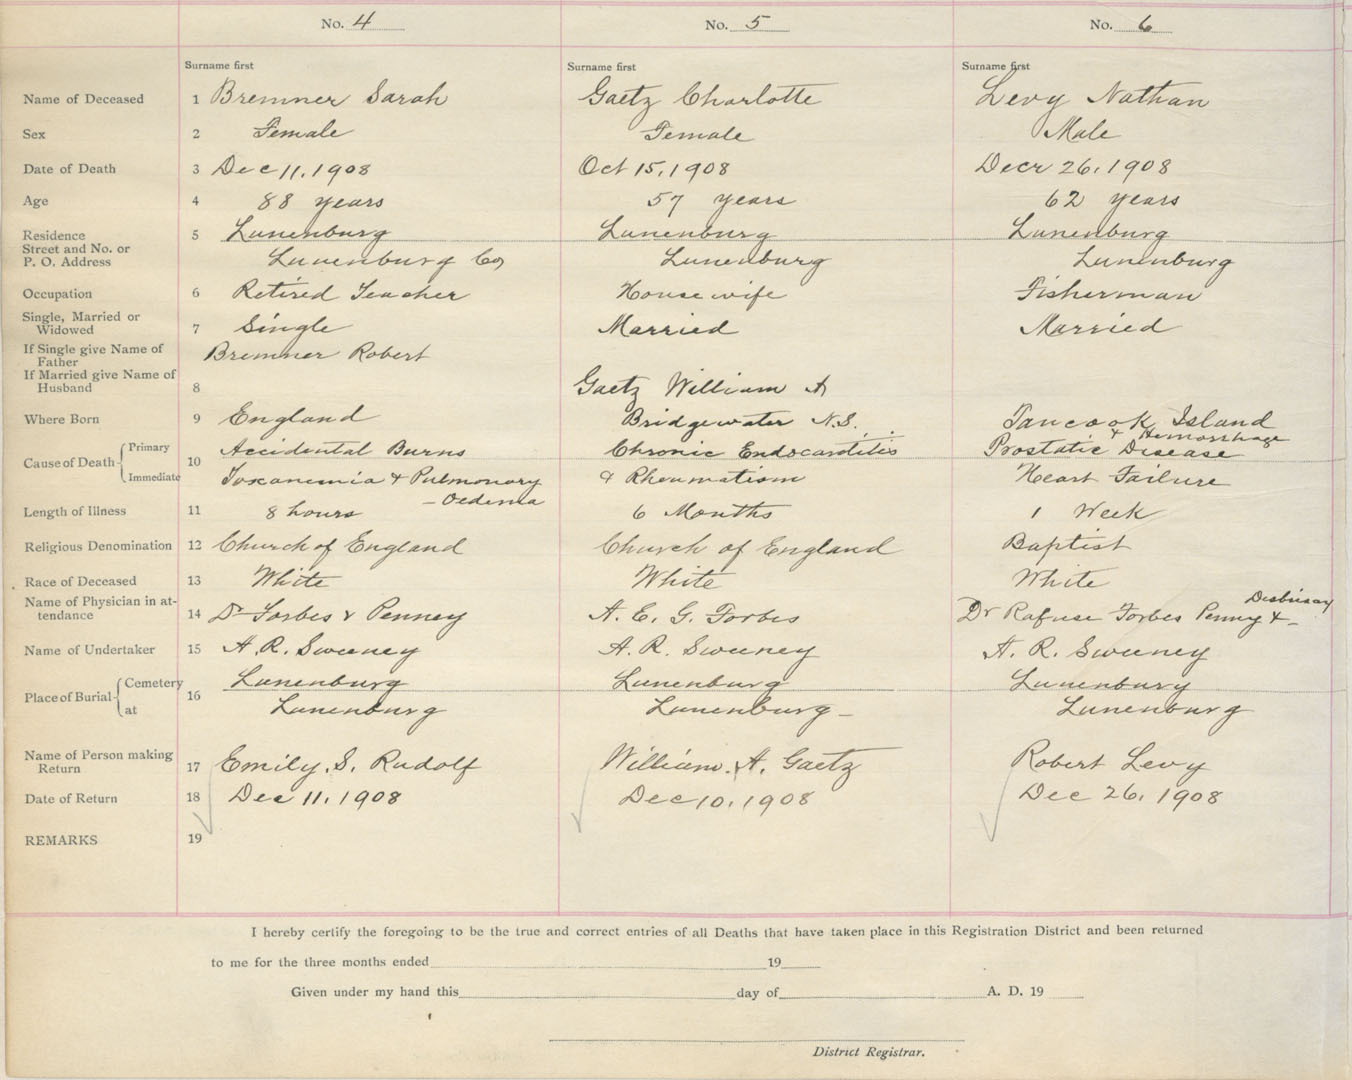 No. 4 No. 5 No. 6
Surname first Surname first Surname first
Name of Deceased 1 Bremner Sarah Gaetz Charlotte Levy Nathan
Sex 2 Female Female Male
Date of Death 3 Dec 11, 1908 Oct 15, 1908 Decr 26, 1908
Age 4 88 years 57 years 62 years
Residence 5 Lunenburg Lunenburg Lunenburg
Street and No. or
P. O. Address Lunenburg Co, Lunenburg Lunenburg
Occupation 6 Retired Teacher Housewife Fisherman
Single, Married or
Widowed 7 Single Married Married
If Single give Name of
Father Bremner Robert
If Married give Name of
Husband 8 Gaetz William A
Where Born 9 England Bridgewater N.S. Tancook Island
& Hemorrhage
Cause of Death Primary Accidental Burns Chronic Endocarditis Prostatic Disease
10
Immediate Toxanemia & Pulmonary & Rheumatism Heart Failure
- Oedema
Length of Illness 11 8 hours 6 Months 1 Week
Religious Denomination 12 Church of England Church of England Baptist
Race of Deceased 13 White White White
Name of Physician in at- Desbrisay
tendance 14 Dr Forbes & Penney A. E. G. Forbes Dr Rafuse Forbes Penny & -
Name of Undertaker 15 A. R. Sweeney A. R. Sweeney A. R. Sweeney
Place of Burial Cemetery 16 Lunenburg Lunenburg Lunenbury
at Lunenburg Lunenburg - Lunenburg
Name of Person making
Return 17 Emily. S. Rudolf William. A. Gaetz Robert Levy
Date of Return 18 Dec 11, 1908 Dec 10, 1908 Dec 26, 1908
REMARKS 19
I hereby certify the foregoing to be the true and correct entries of all Deaths that have taken place in this Registration District and been returned
to me for the three months ended 19
Given under my hand this day of A. D. 19
District Registrar.